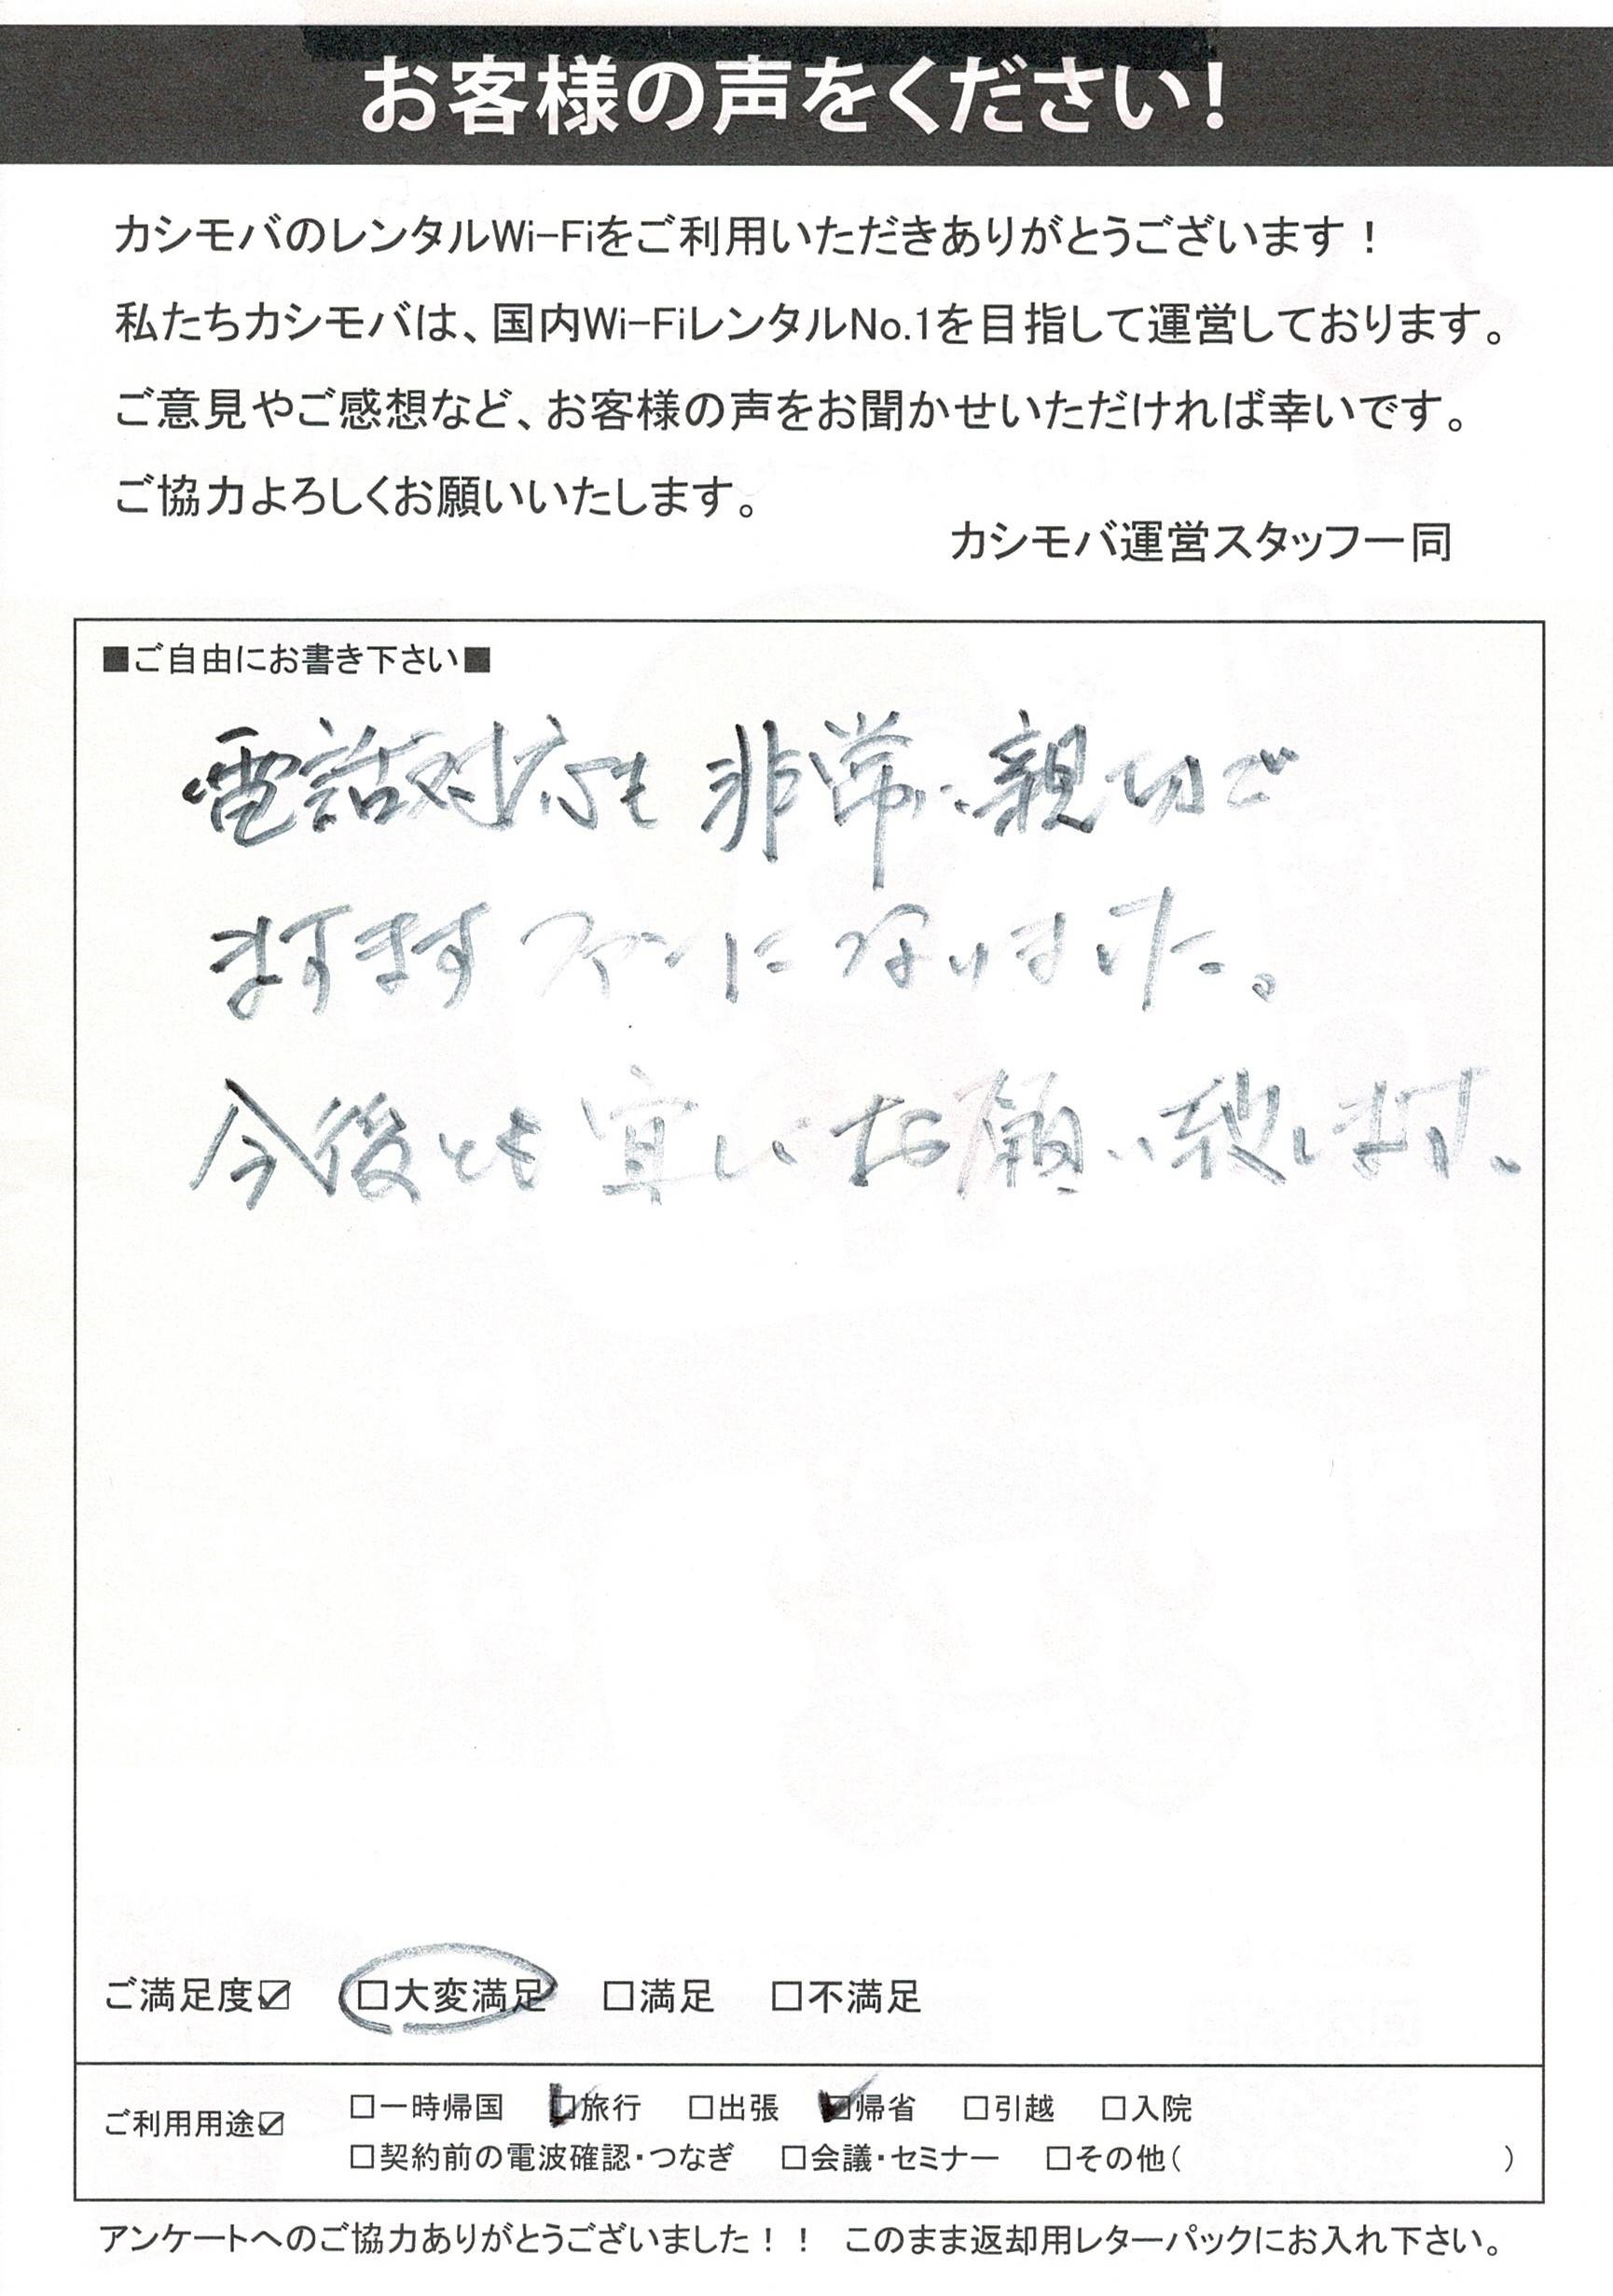 お客様の声をください!
カシモバのレンタルWi-Fiをご利用いただきありがとうございます！
私たちカシモバは、国内Wi-FiレンタルNo.1を目指して運営しております。
ご意見やご感想など、お客様の声をお聞かせいただければ幸いです。
ご協力よろしくお願いいたします。
カシモバ運営スタッフ一同
■ご自由にお書き下さい■
電話対応も非常に親切で
ますますファンになりました。
今後とも宜しくお願い致します。
ご満足度☑ □大変満足 □満足 □不満足
ご利用用途☑ □一時帰国 ☑旅行 □出張 ☑帰省 □引越 □入院
□契約前の電波確認・つなぎ □会議・セミナー □その他( )
アンケートへのご協力ありがとうございました！！ このまま返却用レターパックにお入れ下さい。